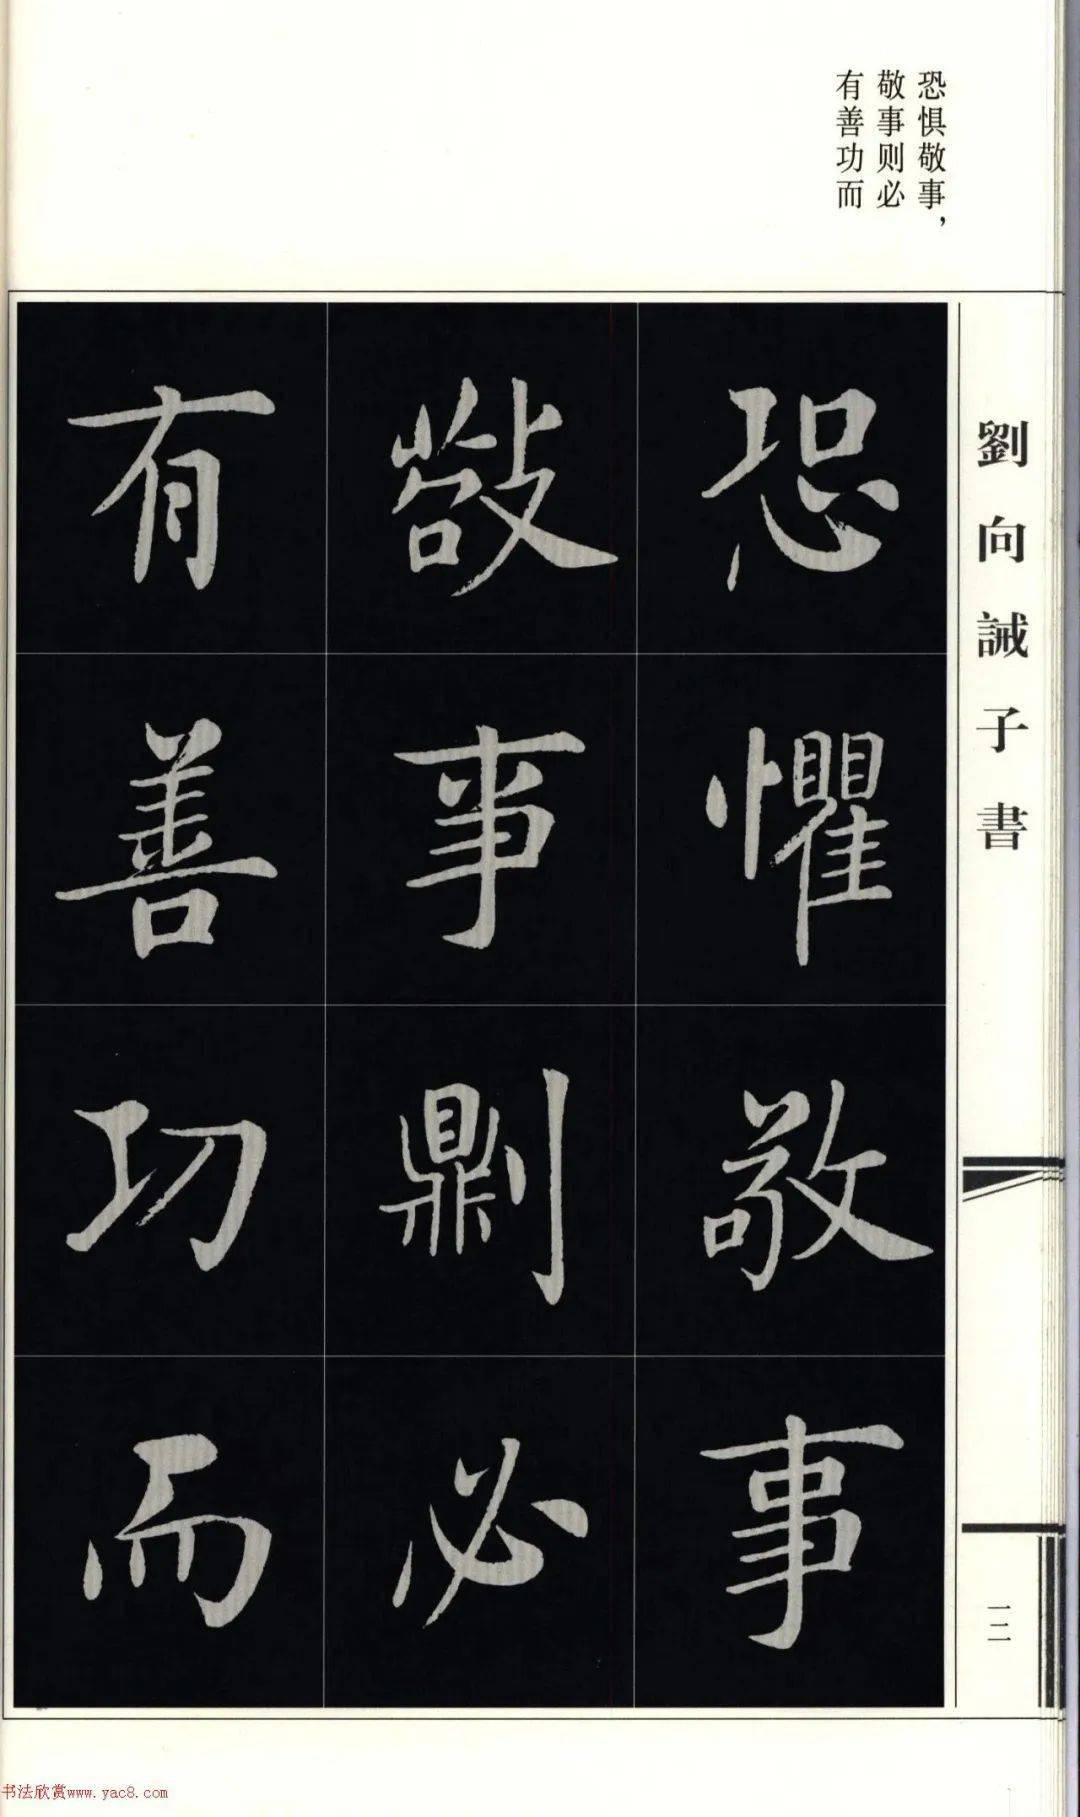 恐惧敬事，
敬事则必
有善功而
劉向誡子書
恐懼敬事
敬事則必
有善功而
一二
书法欣赏www.yac8.com